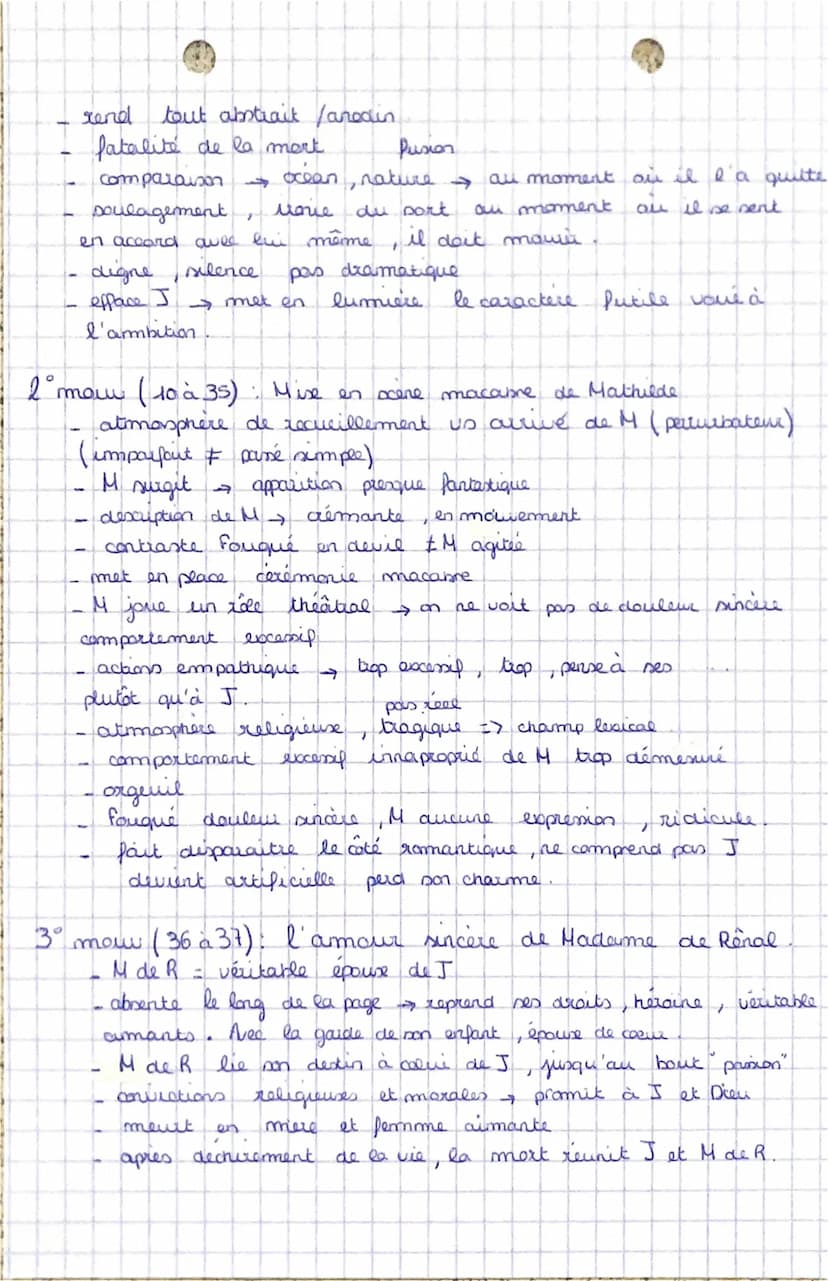 - rend tout abstrait /anodin
- fatalité de la mort fusion
- comparaison → océan, nature → au moment où il l'a quitte
- soulagement, ironie du sort au moment où il se sent
en accord avec lui même, il doit mourir.
- digne, silence pas dramatique
- efface J → met en lumière le caractère futile voué à
l'ambition.
2° mouv (10 à 35) : Mise en scène macabre de Mathilde
- atmosphère de recueillement vs arrivé de M (perturbateur)
(imparfait ≠ passé simple)
- M surgit → apparition presque fantastique
- description de M → aimante, en mouvement
- contraste Fouqué en deuil ≠ M agitée
- met en place cérémonie macabre
- M joue un rôle théâtral → on ne voit pas de douleur sincère
comportement excessif
- actions empathique → trop excessif, trop, pense à ses ...
plutôt qu'à J.
pas réel
- atmosphère religieuse, tragique => champ lexical
- comportement excessif innaproprié de M trop démesuré
- orgeuil
- Fouqué douleur sincère, M aucune expression, ridicule.
- fait disparaitre le côté romantique, ne comprend pas J
devient artificielle perd son charme.
3° mouv (36 à 37) : l'amour sincère de Madame de Rênal.
- M de R = véritable épouse de J
- absente le long de la page → reprend ses droits, héroine, véritable
aimants. Avec la garde de son enfant, épouse de coeur.
- M de R lie son destin à celui de J, jusqu'au bout "passion"
- convictions religieuses et morales → promit à J et Dieu
- meurt en mère et femme aimante
- après déchirement de la vie, la mort réunit J et M de R.